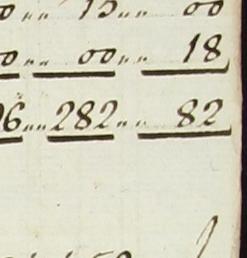 0 „ 15 „ 00
0 „ 00 „ 18
06 „ 282 „ 82